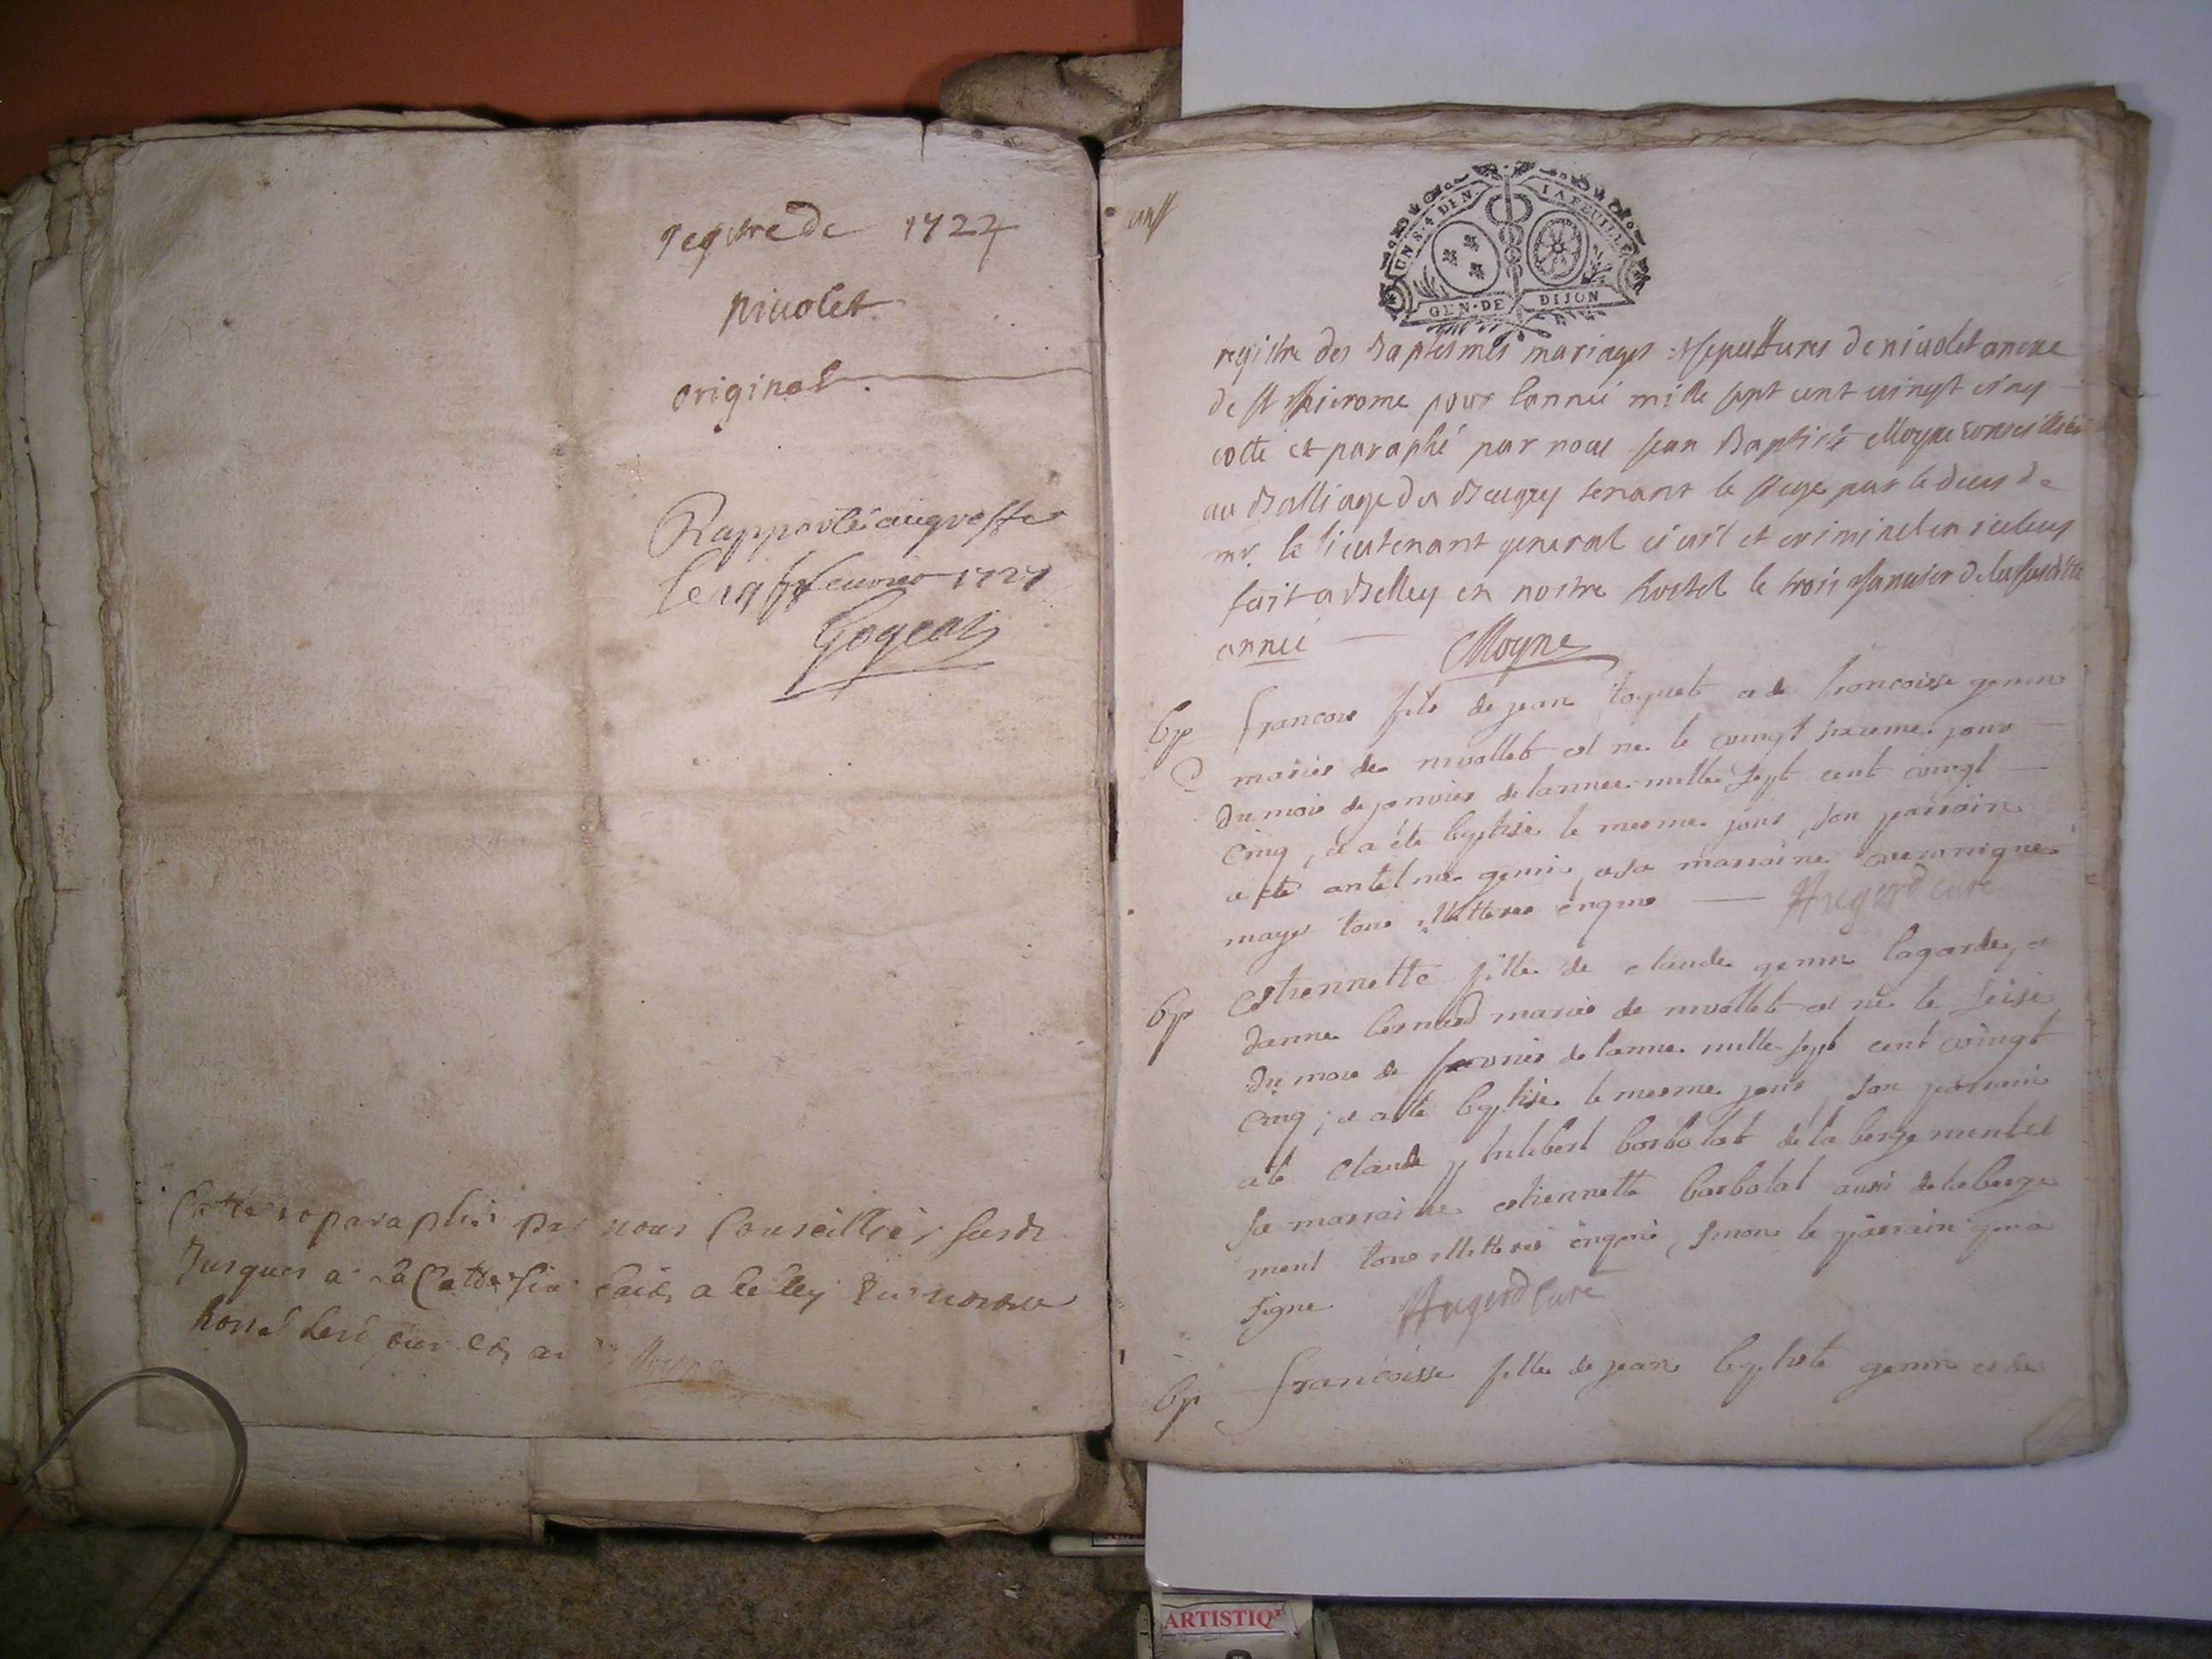 registre de 1724
nivolet
original
Rapporté au greffe
le 19 fevrier 1727
Cotté et paraphé par nous Conseillier susdt
Jusques a la Cotte fait a belley En nostre
hostel lesd jour et an Moyne
un
UN S. 4 DEN. LA FEUILLE
GEN. DE DIJON
registre des Baptesmes mariages et sepultures de nivolet anexe
de st hierome pour lannéé mille sept cent vingt cinq
cotté et paraphé par nous Jean Baptiste Moyne conseiller
au Balliage du Beugey tenant le siege par le deces de
mr. le lieutenant general civil et criminel en iceluy
fait a Belley en nostre hostel le trois Janvier de la susditte
année Moyne
bp francois fils de jean toquet et de francoise genin
mariés de nivollet est né le vingt jour
du mois de janvier de lannee mille sept cent vingt
cinq, et a été baptisé le mesme jour, son parrain
a été antelme genin, et sa marraine veronique
mayet tous illitteres enquis Augerd curé
bp estiennette fille de claude genin lagarde, et
danne bernard mariés de nivollet est né le seise
du mois de fevrier de lanne mille sept cent vingt
cinq; et a été baptisé le mesme jour, son parrain
a été claude philibert borbolat de la bergement et
sa marraine estiennette borbolat aussi de laberge
ment tous illitterés enquis, sinon le parrain qui a
signe Augerd Curé
bp francoisse fille de jean baptiste genin et de
ARTISTIQ